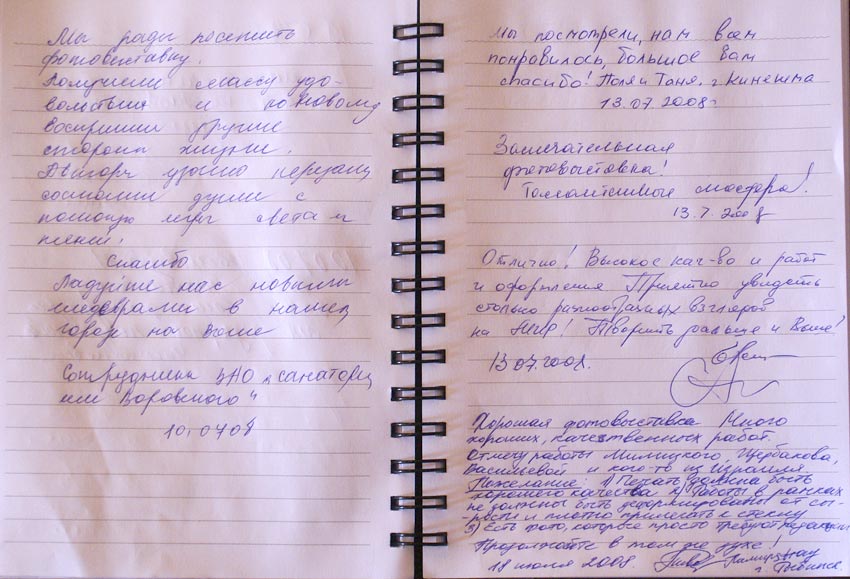 Мы рады посетить
фотовыставку.
Получили массу удо-
вольствия и по новому
восприняли другие
стороны жизни.
Авторы удачно передали
состояние души с
помощью игры света и
тени.
Спасибо
Радуйте нас новыми
шедеврами в нашем
городе на Волге
Сотрудники ЗАО „санаторий
им Воровского"
10.07.08
Мы посмотрели, нам всем
понравилось, большое вам
спасибо! Поля и Таня. г. Кинешма
13.07 2008г
Замечательная
фотовыставка!
13.7.2008
Отлично! Высокое кач-во и работ
и оформления Приятно увидеть
столько разнообразных взглядов
на мир! Творить дальше и Выше!
13.07.2008.
Хорошая фотовыставка Много
хороших, качественных работ.
Отмечу работы Милицкого, Щербакова,
Васильевой и кого-то из Израиля.
Пожелание: 1) Печать должна быть
хорошего качества 2) Работы в рамках
не должны быть деформированы от сы-
рости и плотно прилегать к стеклу
3) Есть фото, которое просто требует редакции
Продолжайте в том же духе!
19 июля 2008.
г. Рыбинск.